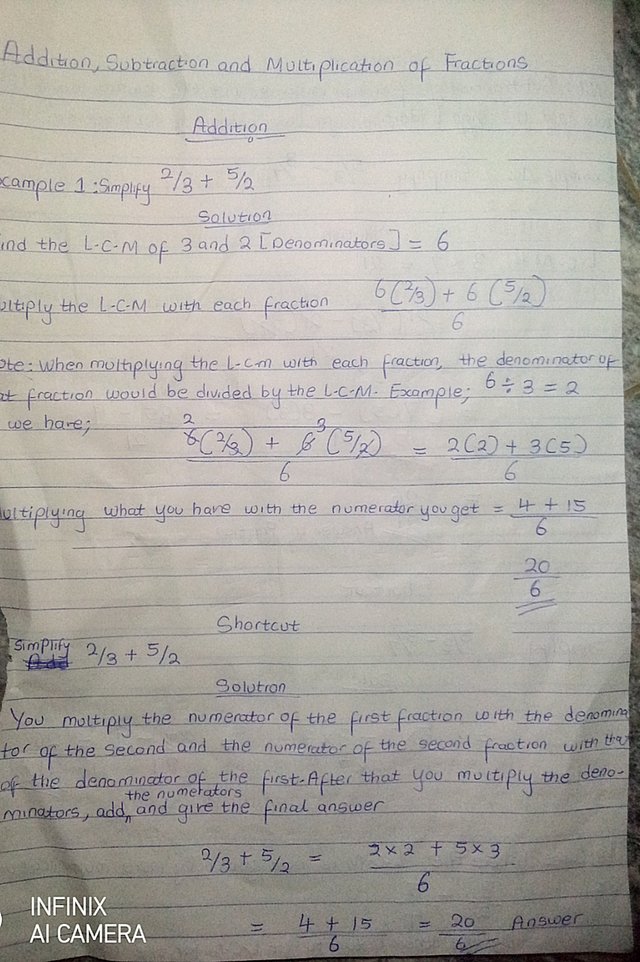 Addition, Subtraction and Multiplication of Fractions
Addition
xample 1: Simplify 2/3 + 5/2
Solution
ind the L-C-M of 3 and 2 [Denominators] = 6
ultiply the L-C-M with each fraction 6(2/3) + 6(5/2)
6
ote: When multiplying the L-c-m with each fraction, the denominator of
at fraction would be divided by the L-C-M. Example; 6 ÷ 3 = 2
we have;
2 3
6(2/3) + 6(5/2) = 2(2) + 3(5)
6 6
ultiplying what you have with the numerator you get = 4 + 15
6
20
6
Shortcut
Simplify 2/3 + 5/2
Solution
You multiply the numerator of the first fraction with the denomina
tor of the second and the numerator of the second fraction with that
of the denominator of the first. After that you multiply the deno-
minators, add the numerators and give the final answer
2/3 + 5/2 = 2 x 2 + 5 x 3
6
= 4 + 15 = 20 Answer
6 6
INFINIX
AI CAMERA